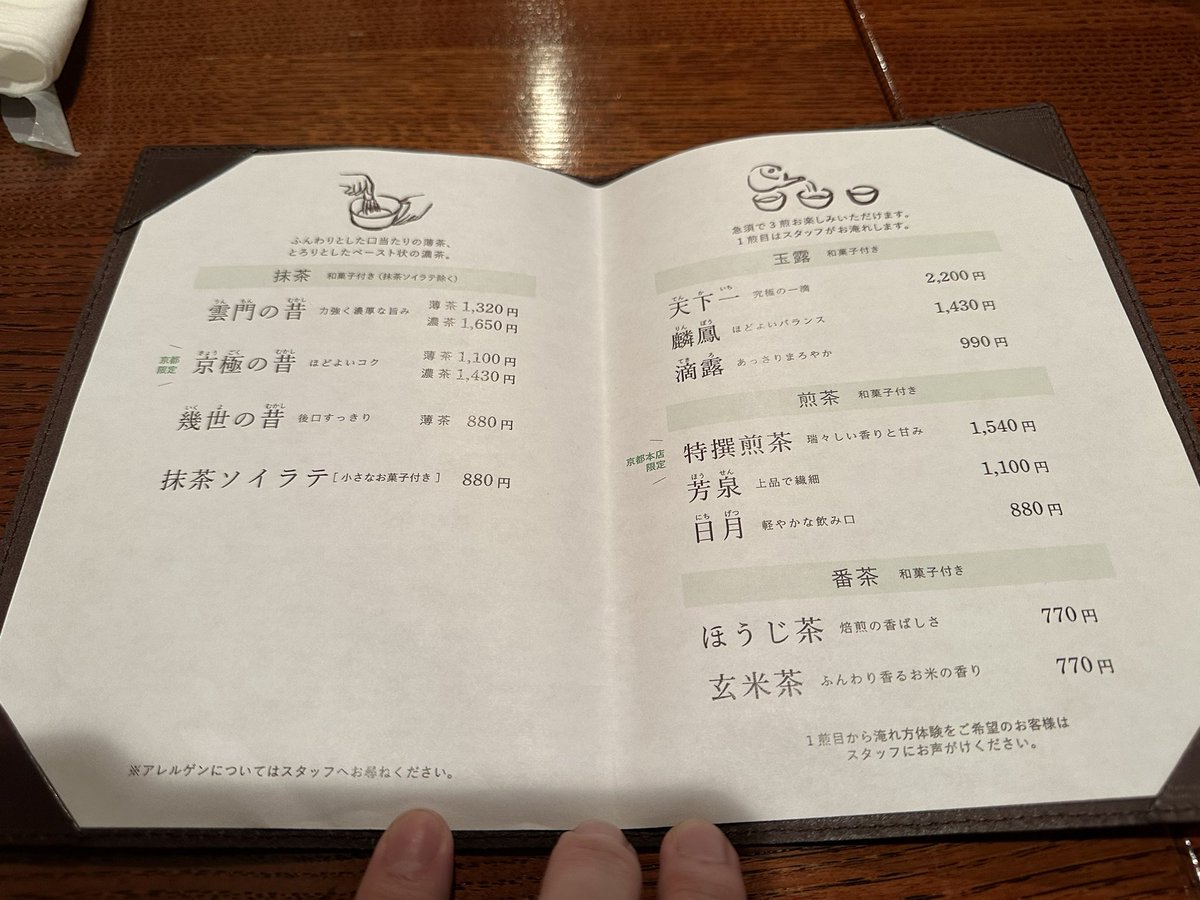 ふんわりとした口当たりの薄茶、
とろりとしたペースト状の濃茶。
抹茶 和菓子付き(抹茶ソイラテ除く)
うん もん むかし
雲門の昔 力強く濃厚な旨み 薄茶 1,320円
濃茶 1,650円
京都限定
きょう ごく むかし
京極の昔 ほどよいコク 薄茶 1,100円
濃茶 1,430円
いく よ むかし
幾世の昔 後口すっきり 薄茶 880円
抹茶ソイラテ[小さなお菓子付き] 880円
※アレルゲンについてはスタッフへお尋ねください。
急須で3煎お楽しみいただけます。
1煎目はスタッフがお淹れします。
玉露 和菓子付き
てん か いち
天下一 究極の一滴 2,200円
りん ぽう
麟鳳 ほどよいバランス 1,430円
てき ろ
滴露 あっさりまろやか 990円
煎茶 和菓子付き
京都本店
限定
特撰煎茶 瑞々しい香りと甘み 1,540円
ほう せん
芳泉 上品で繊細 1,100円
にち げつ
日月 軽やかな飲み口 880円
番茶 和菓子付き
ほうじ茶 焙煎の香ばしさ 770円
玄米茶 ふんわり香るお米の香り 770円
1煎目から淹れ方体験をご希望のお客様は
スタッフにお声がけください。